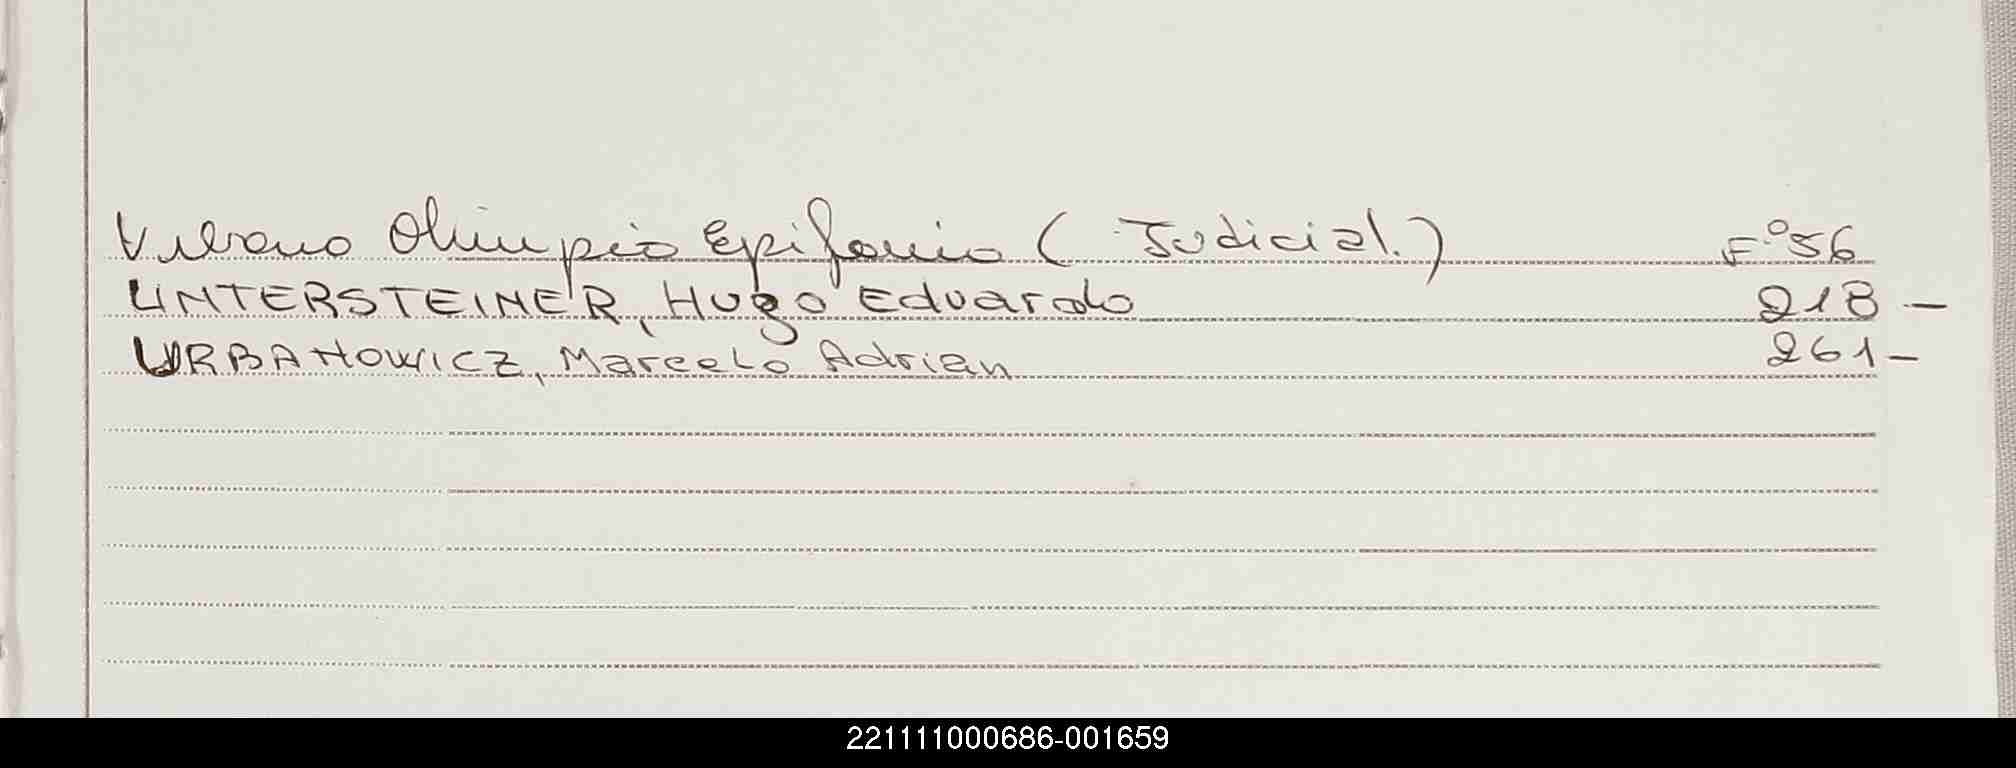 Urbano Olimpio Epifanio (Judicial.) F.º 56
UNTERSTEINER, Hugo Eduardo 218 -
URBANOWICZ, Marcelo Adrian 261 -
221111000686-001659